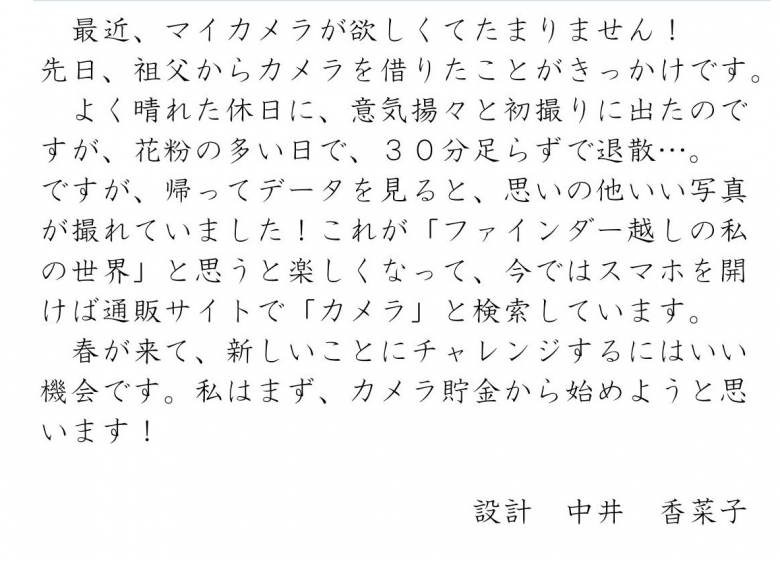 最近、マイカメラが欲しくてたまりません！
先日、祖父からカメラを借りたことがきっかけです。
　よく晴れた休日に、意気揚々と初撮りに出たので
すが、花粉の多い日で、３０分足らずで退散…。
ですが、帰ってデータを見ると、思いの他いい写真
が撮れていました！これが「ファインダー越しの私
の世界」と思うと楽しくなって、今ではスマホを開
けば通販サイトで「カメラ」と検索しています。
　春が来て、新しいことにチャレンジするにはいい
機会です。私はまず、カメラ貯金から始めようと思
います！
設計　中井　香菜子